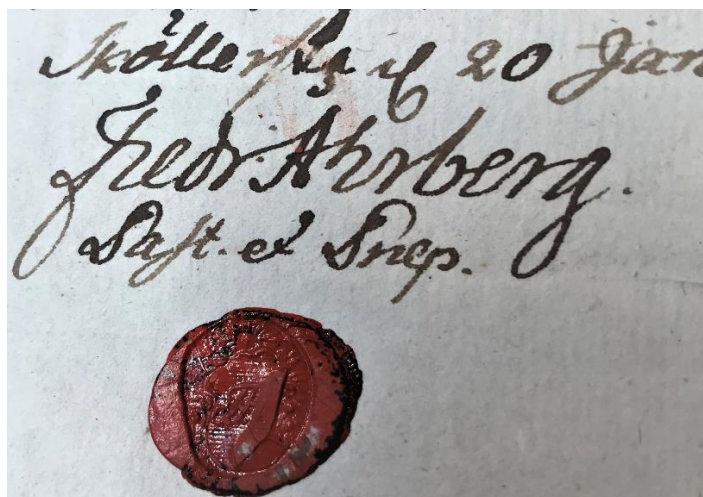 Sköllersta d 20 Jan
Fredr. Ahrberg.
Past. et Præp.